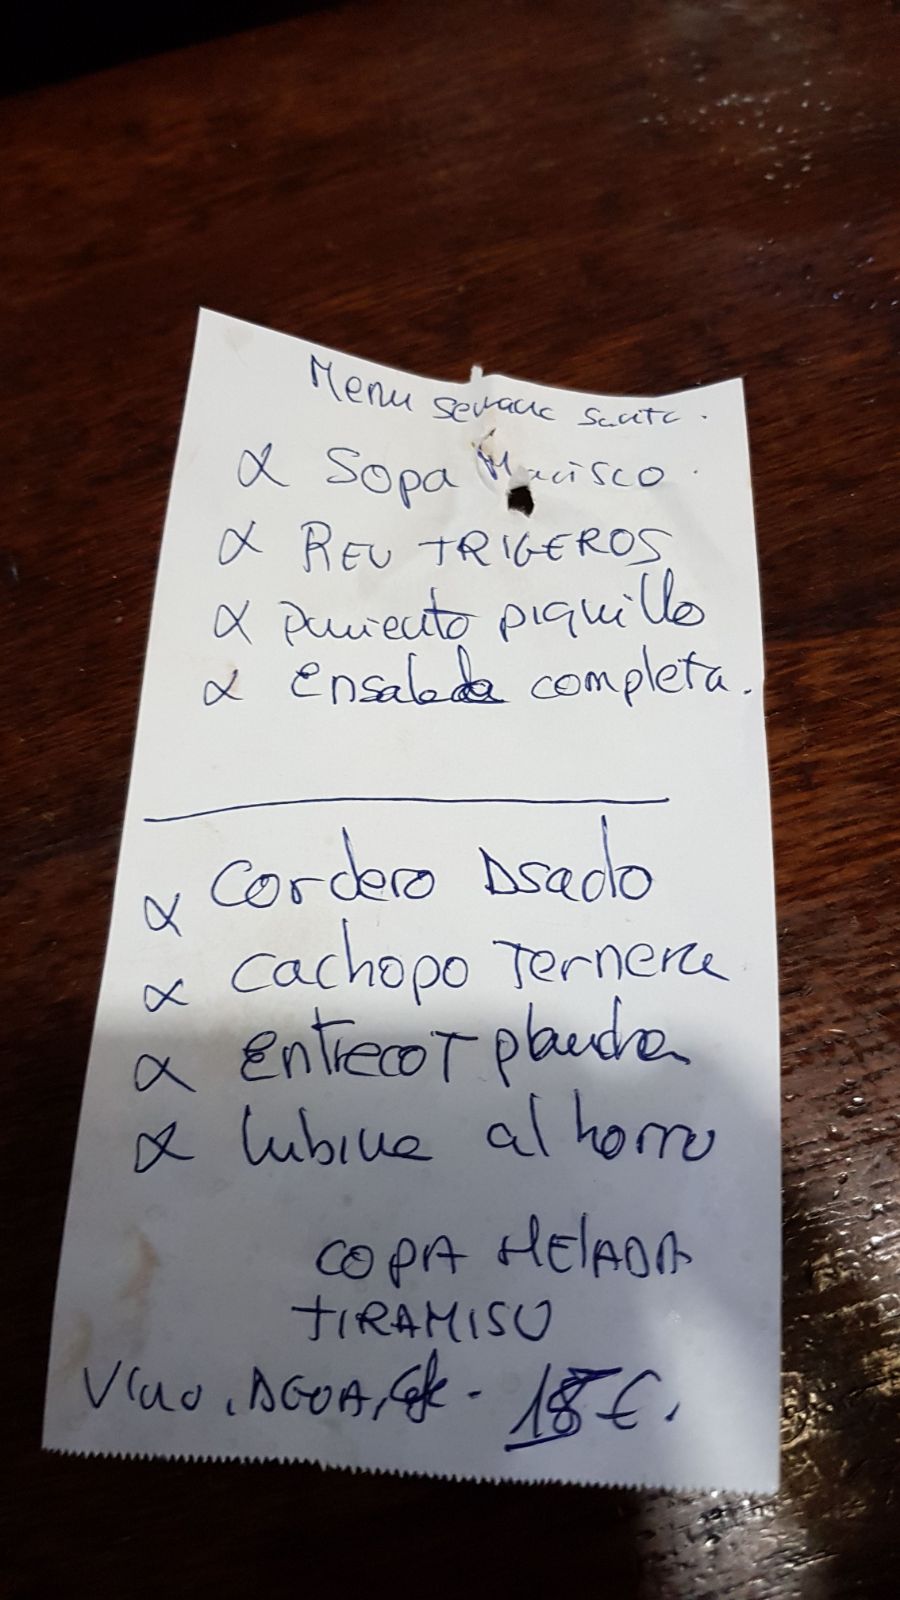 Menu semana santa.
Sopa Marisco
REV TRIGEROS
pimiento piquillo
Ensalada completa.
Cordero Asado
Cachopo Ternera
Entrecot plancha
lubina al horno
COPA HELADA
TIRAMISU
Vino, AGUA, Cafe - €.